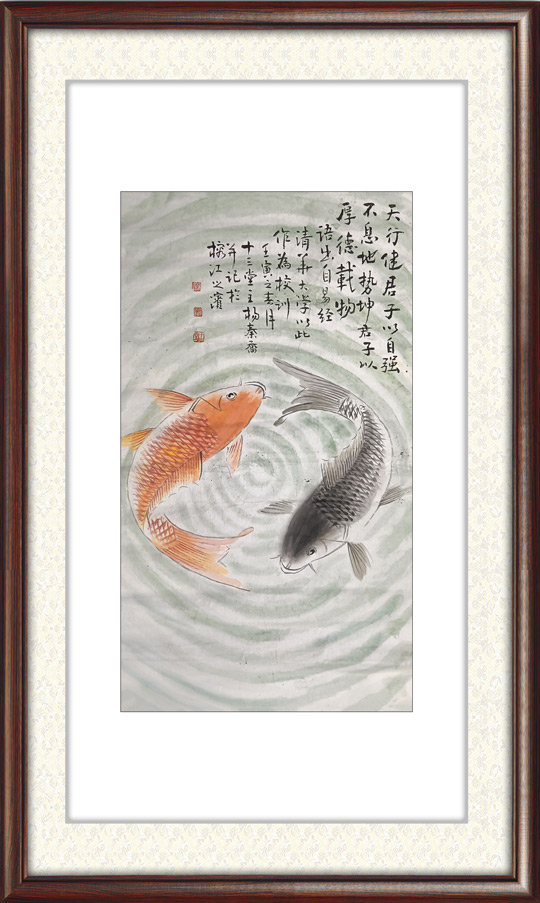 天行健君子以自强
不息地势坤君子以
厚德載物
语出自易经
清华大学以此
作為校训
壬寅之春月
十三堂主杨秦斋
并记於
榕江之濱